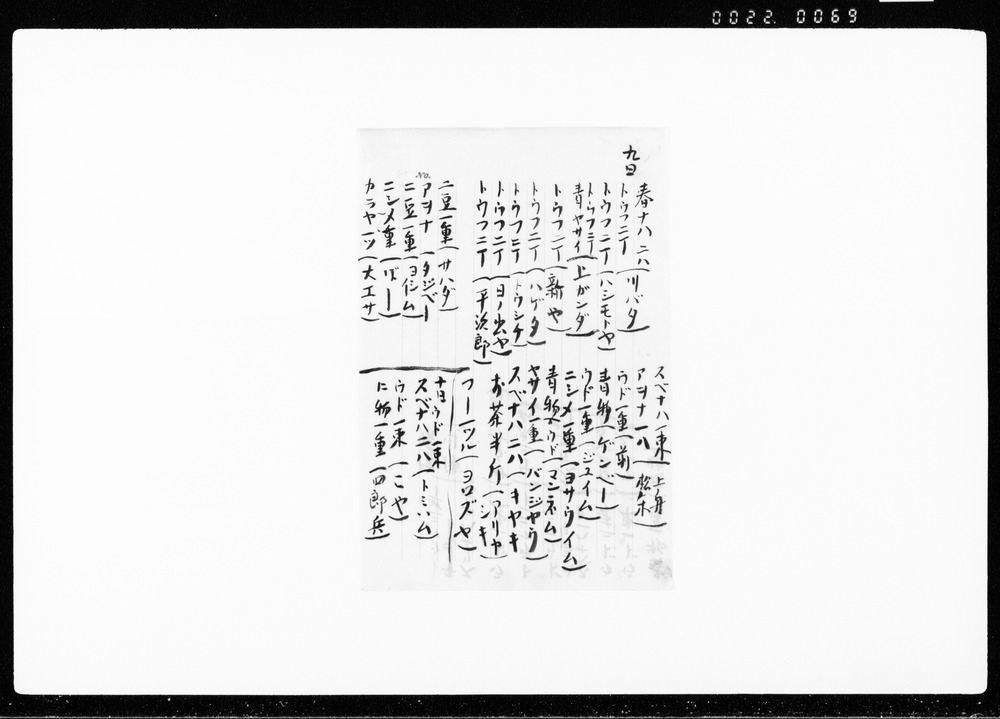 0022. 0069
九日
春ナハ 二ハ (川バタ)
トウフニ丁
トウフニ丁 (ハシモトヤ)
トウフニ丁
青ヤサイ (上ガンダ)
トウフニ丁 (新や)
トウフニ丁 (ハゲタ)
トウフニ丁 (トウシチ)
トウフニ丁 (日ノ出ヤ)
トウフニ丁 (平次郎)
二豆一重 (サハダ)
No.
アヲナ (タジベー)
二豆一重 (ヨイシム)
ニシメ一重 (バー)
カラヤーツ (大エサ)
スベナハ一束 (上舟)
アヲナ一ハ (松朱)
ウド一重 (前)
青物 (ゲンベー)
ウド一重 (ジユイム)
ニシメ一重 (ヨサウイム)
青物ウド (マンネム)
ヤサイ一重 (バンジヤウ)
スベナハ二ハ (キヤキ
お茶半斤 (アリヤシキ)
フーーツル (ヨロズヤ)
十日ウド一束
スベナハ二ハ (トミハム)
ウド一束 (こや)
に物一重 (四郎兵)